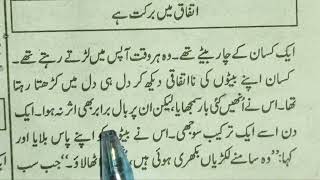 اتفاق میں برکت ہے
ایک کسان کے چار بیٹے تھے۔ وہ ہر وقت آپس میں لڑتے رہتے تھے۔
کسان اپنے بیٹوں کی نااتفاقی دیکھ کر دل ہی دل میں کڑھتا رہتا
تھا۔ اس نے اُنھیں کئی بار سمجھایا، لیکن ان پر بال برابر بھی اثر نہ ہوا۔ ایک
دن اسے ایک ترکیب سوجھی۔ اس نے بیٹوں کو اپنے پاس بلایا اور
کہا: ”وہ سامنے لکڑیاں بکھری ہوئی ہیں، اٹھا لاؤ۔“ جب سب